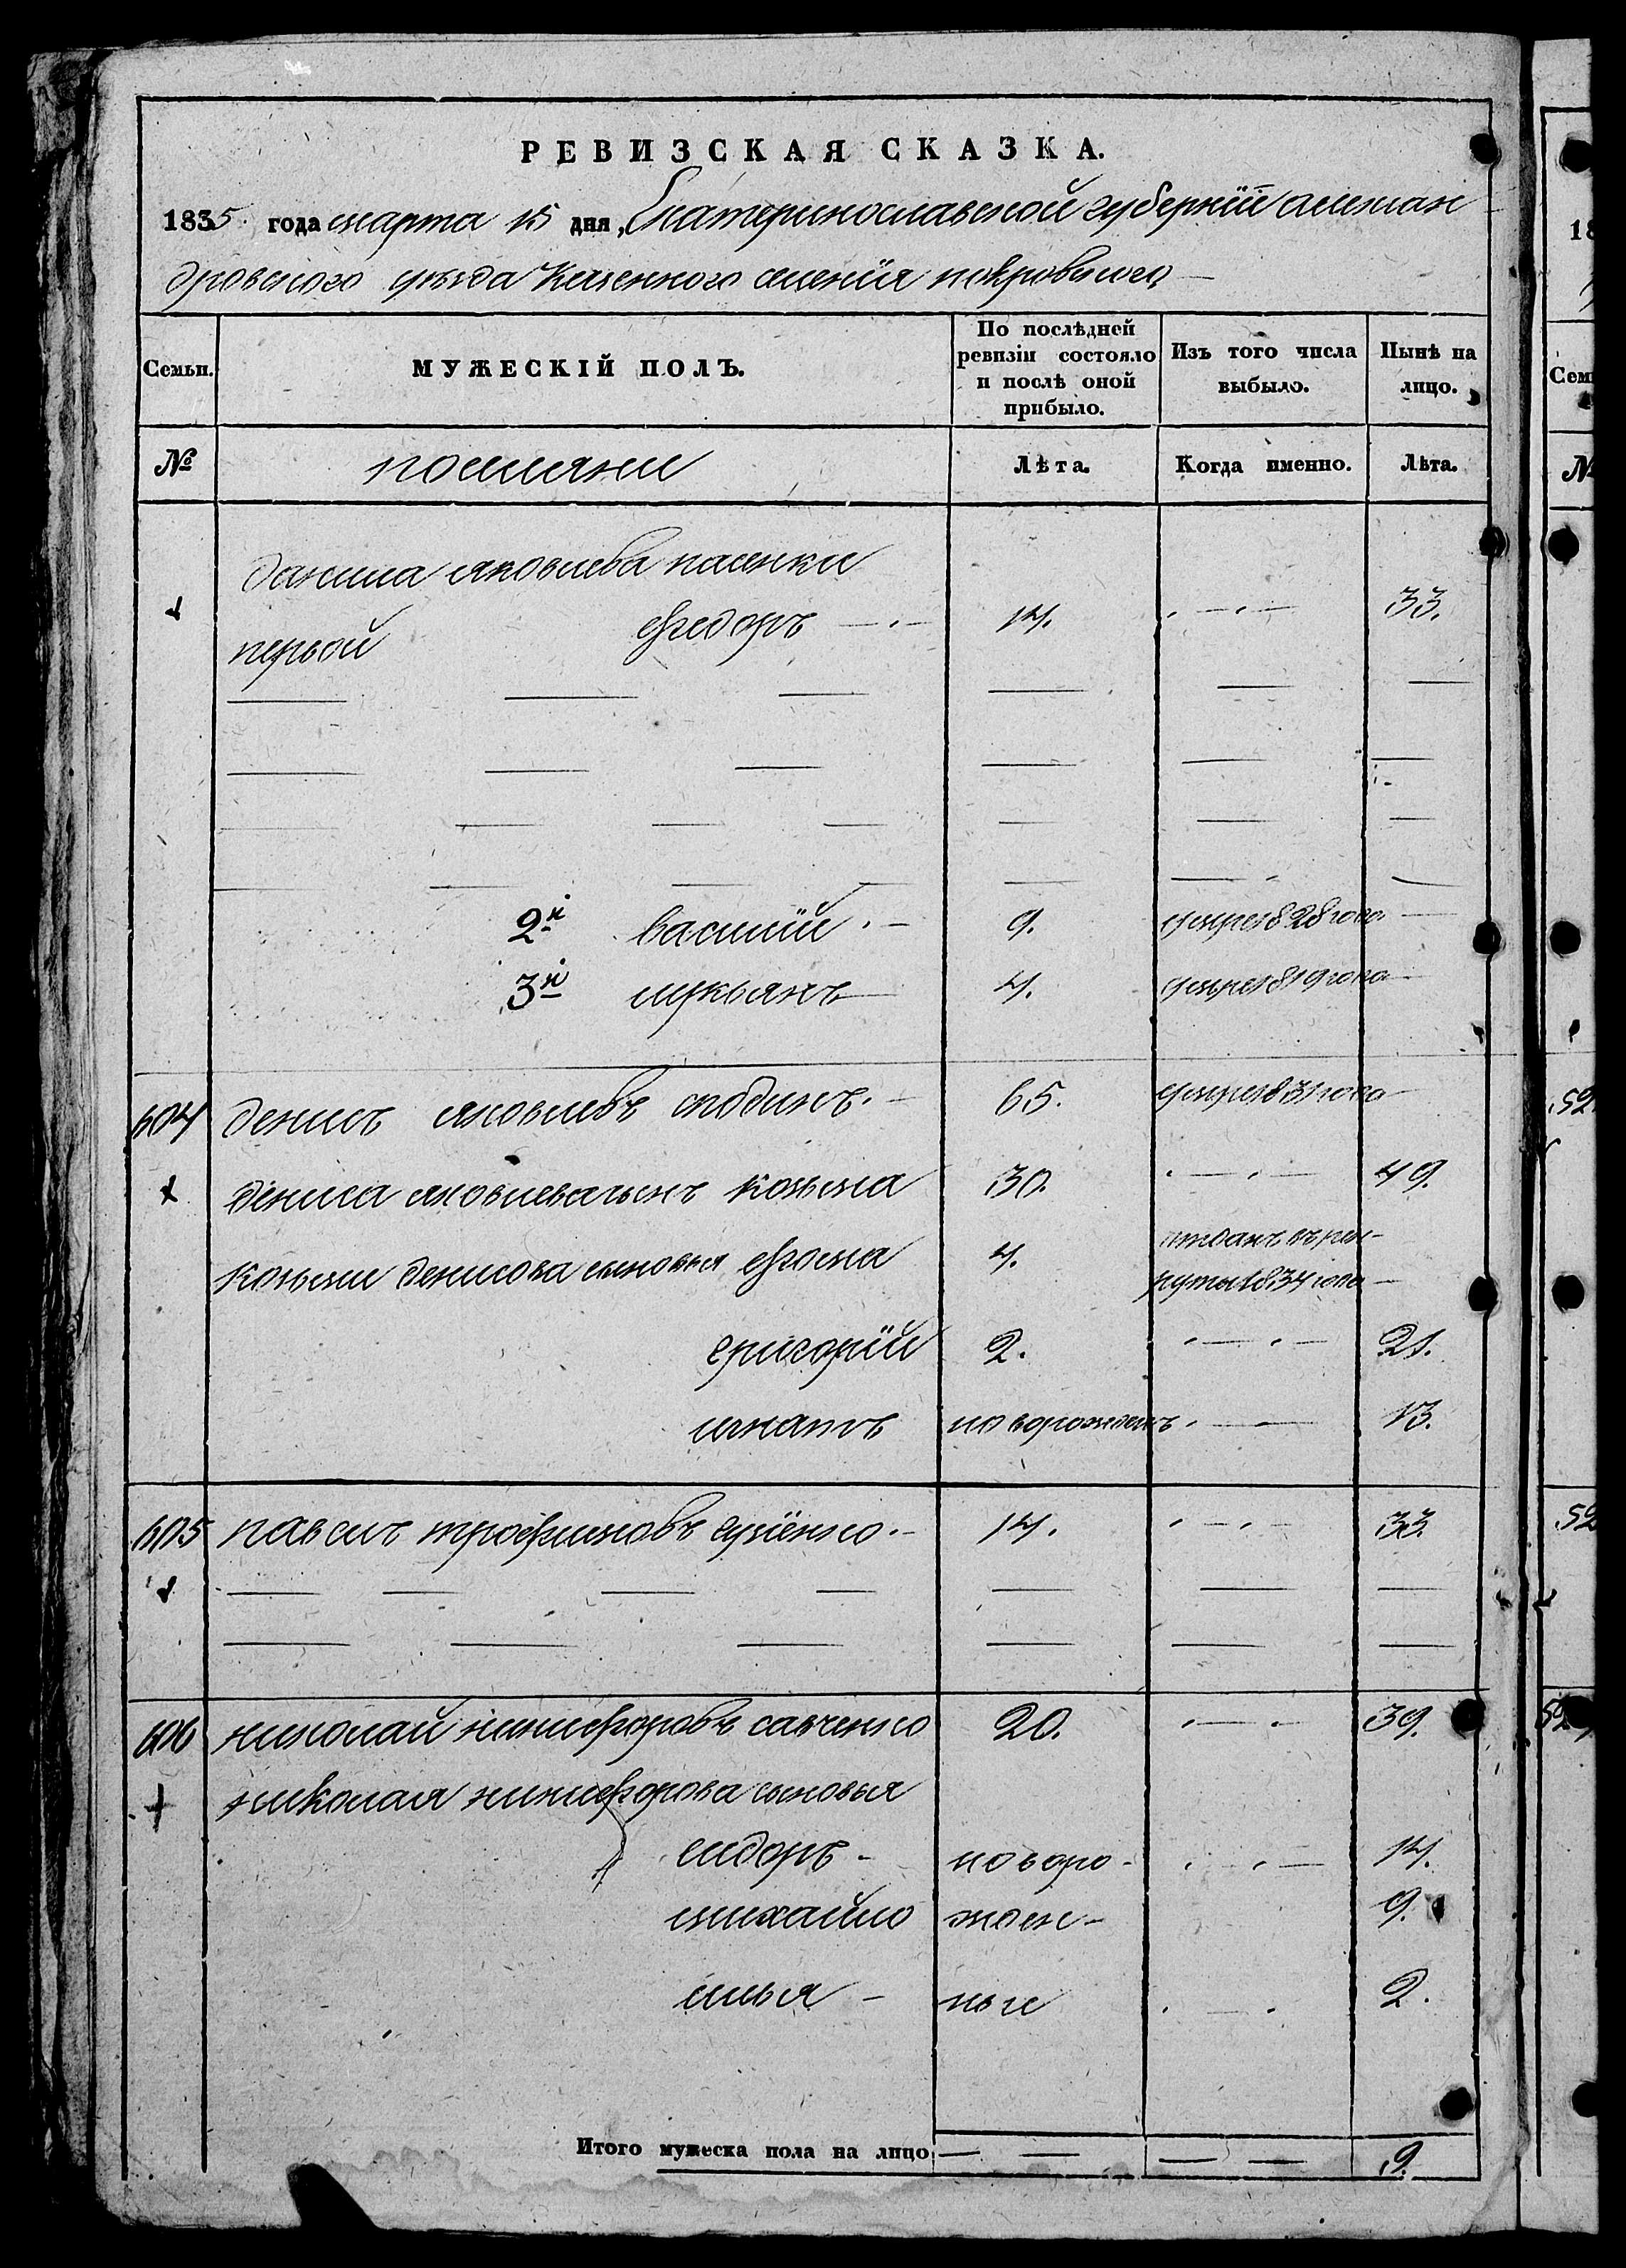 РЕВИЗСКАЯ СКАЗКА.
1835 года марта 15 дня, Екатеринославской губернiи алексан
дровского уезда Казенного селенiя покровского
Семьи.
МУЖЕСКІЙ ПОЛЪ.
По послѣдней ревизіи состояло и послѣ оной прибыло.
Изъ того числа выбыло.
Нынѣ на лицо.
№
поселяни
Лѣта.
Когда именно.
Лѣта.
данила яковлева
первой федоръ 14. 33.
2й василiй 9. умре 1828 года
3й лукьянъ 4. умре 1819 года
604 денисъ яковлевъ 65. умре 1831 года
дениса яковлева сынъ козьма 30. 49.
козьми денисова сыновья фома 4. отданъ въ рек-
руты 1834 года
григорiй 2. 21.
игнатъ новорожденъ 13.
605 павелъ трофимовъ 14. 33
606 николай никифоровъ савченко 20. 39.
николая никифорова сыновья
сидоръ новоро- 14.
михайло жден- 9.
илья ные 2.
Итого мужеска пола на лицо 9.